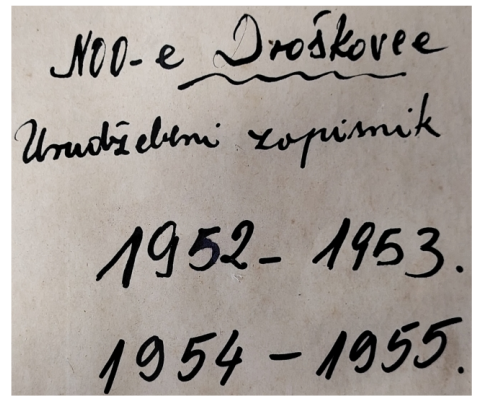 NOO-e Droškovec
Urudžbeni zapisnik
1952- 1953.
1954 - 1955.